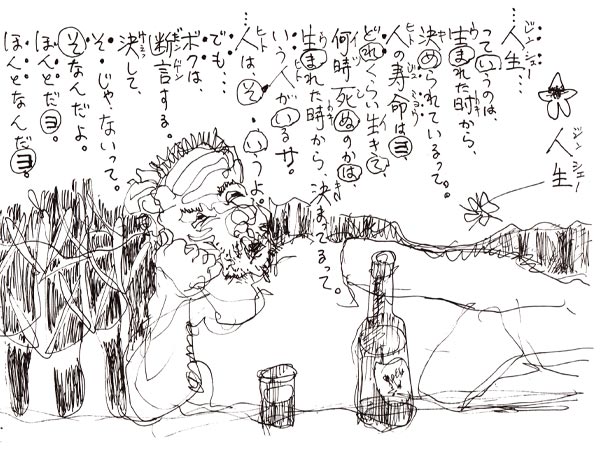 人生
…人生…、
っていうのは、
生まれた時から、
決められているって。
人の寿命はヨ
どれくらい生きて、
何時死ぬのかは、
生まれた時から、決まってるって。
いう人がいるサ。
…人は、そ・いうよ。
でも…
ボクは、
断言する。
決して、
そ・じゃ・ないって。
そなんだよ。
ほんとだヨ。
ほんとなんだヨ。